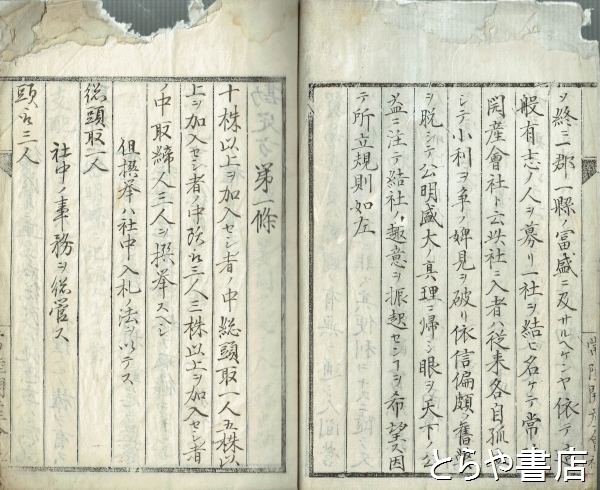 ヲ終ニ一郡一縣ノ富盛ニ及サルヘケンヤ依テ
般有志ノ人ヲ募リ一社ヲ結ヒ名ケテ常
開産會社ト云此社ニ入者ハ従来各自孤
シテ小利ヲ争ノ婢見ヲ破リ依信偏頗ノ舊
ヲ脱シテ公明盛大ノ真理ニ帰シ眼ヲ天下ノ公
益ニ注テ結社ノ趣意ヲ振起センヿヲ希望ス因
テ所立規則如左
第一條
十株以上ヲ加入セシ者ノ中総頭取一人五株以
上ヲ加入セシ者ノ中頭取三人三株以上ヲ加入セシ者
ノ中取締人三人ヲ撰挙スヘシ
但撰挙ハ社中入札ノ法ヲ以テス
総頭取一人
社中ノ事務ヲ総管ス
頭取三人
とらや書店